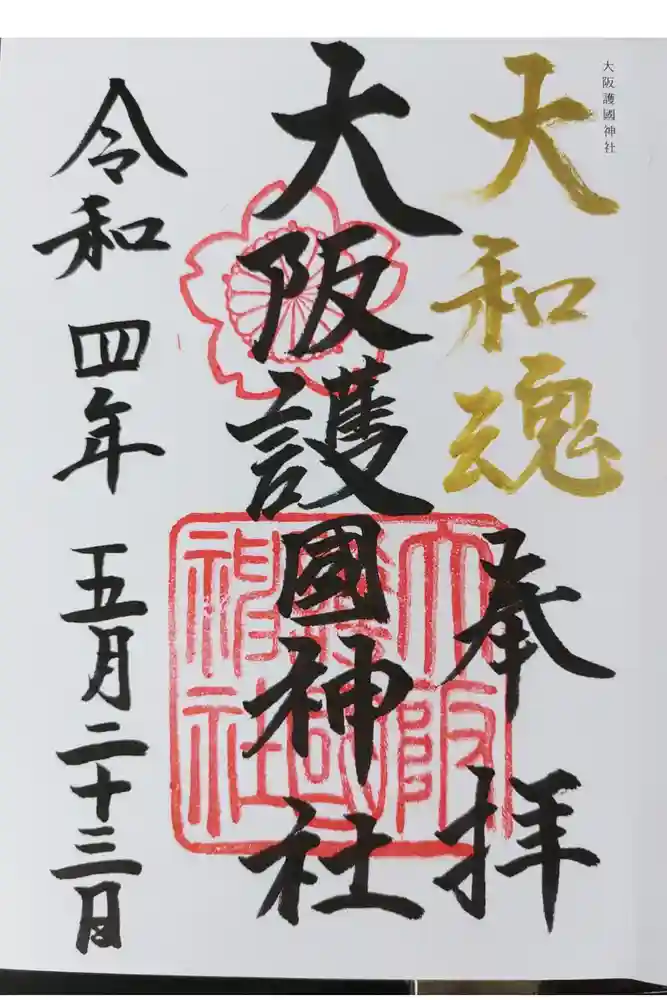 大阪護國神社
大和魂
奉拝
大阪護國神社
大阪護國神社
令和四年五月二十三日